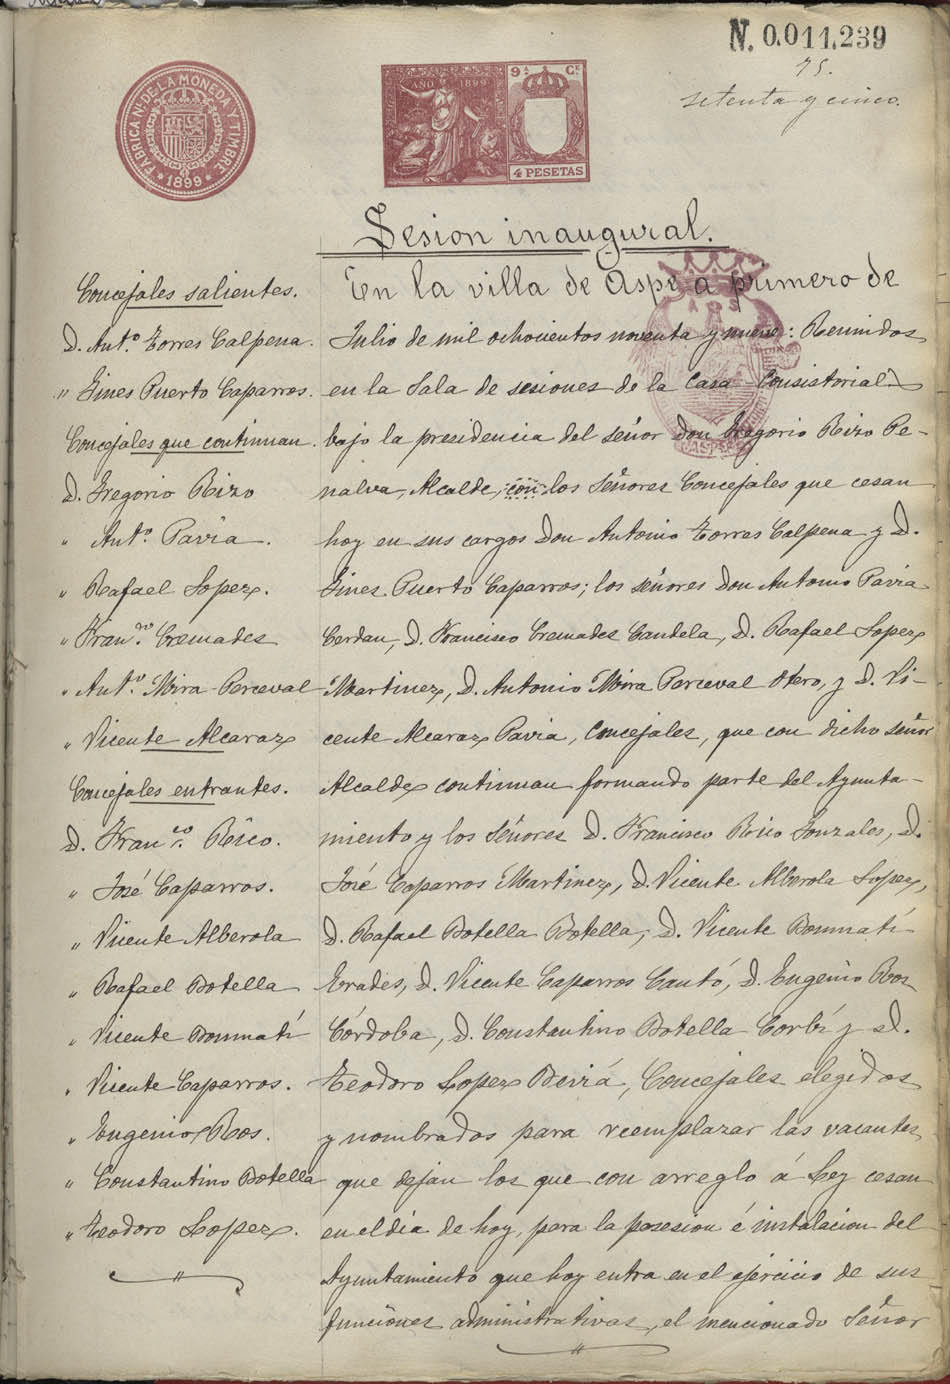 N. 0.011.239
75.
setenta y cinco.
FÁBRICA Nal. DE LA MONEDA Y TIMBRE
* 1899 *
AÑO 1899
9ª. CE.
4 PESETAS
Sesion inaugural.
Concejales salientes.
D. Antº. Torres Calpena.
" Gines Puerto Caparros.
Concejales que continuan.
D. Gregorio Rizo
" Antº. Pavía.
" Rafael Lopez.
" Franco. Cremades
" Antº. Mira-Perceval
" Vicente Alcaraz
Concejales entrantes.
D. Franco. Rico.
" José Caparros.
" Vicente Alberola
" Rafael Botella
" Vicente Bonmatí
" Vicente Caparros.
" Eugenio Ros.
" Constantino Botella
" Teodoro Lopez.
En la villa de Aspe a primero de
Julio de mil ochocientos noventa y nueve: Reunidos
en la Sala de sesiones de la Casa-Consistorial
bajo la presidencia del señor don Gregorio Rizo Pe-
nalva, Alcalde, con los Señores Concejales que cesan
hoy en sus cargos Don Antonio Torres Calpena y D.
Gines Puerto Caparros; los señores don Antonio Pavia
Cerdan, D. Francisco Cremades Candela, D. Rafael Lopez
Martinez, D. Antonio Mira Perceval Otero, y D. Vi-
cente Alcaraz Pavia, Concejales, que con dicho señor
Alcalde continuan formando parte del Ayunta-
miento y los Señores D. Francisco Rico Gonzales, D.
José Caparros Martinez, D. Vicente Alberola Lopez,
D. Rafael Botella Botella, D. Vicente Bonmatí
Erades, D. Vicente Caparros Cantó, D. Eugenio Ros
Córdoba, D. Constantino Botella Corbí y D.
Teodoro Lopez Beviá, Concejales elegidos
y nombrados para reemplazar las vacantes
que dejan los que con arreglo á Ley cesan
en el dia de hoy, para la posesion é instalacion del
Ayuntamiento que hoy entra en el ejercicio de sus
funciones administrativas, el mencionado Señor